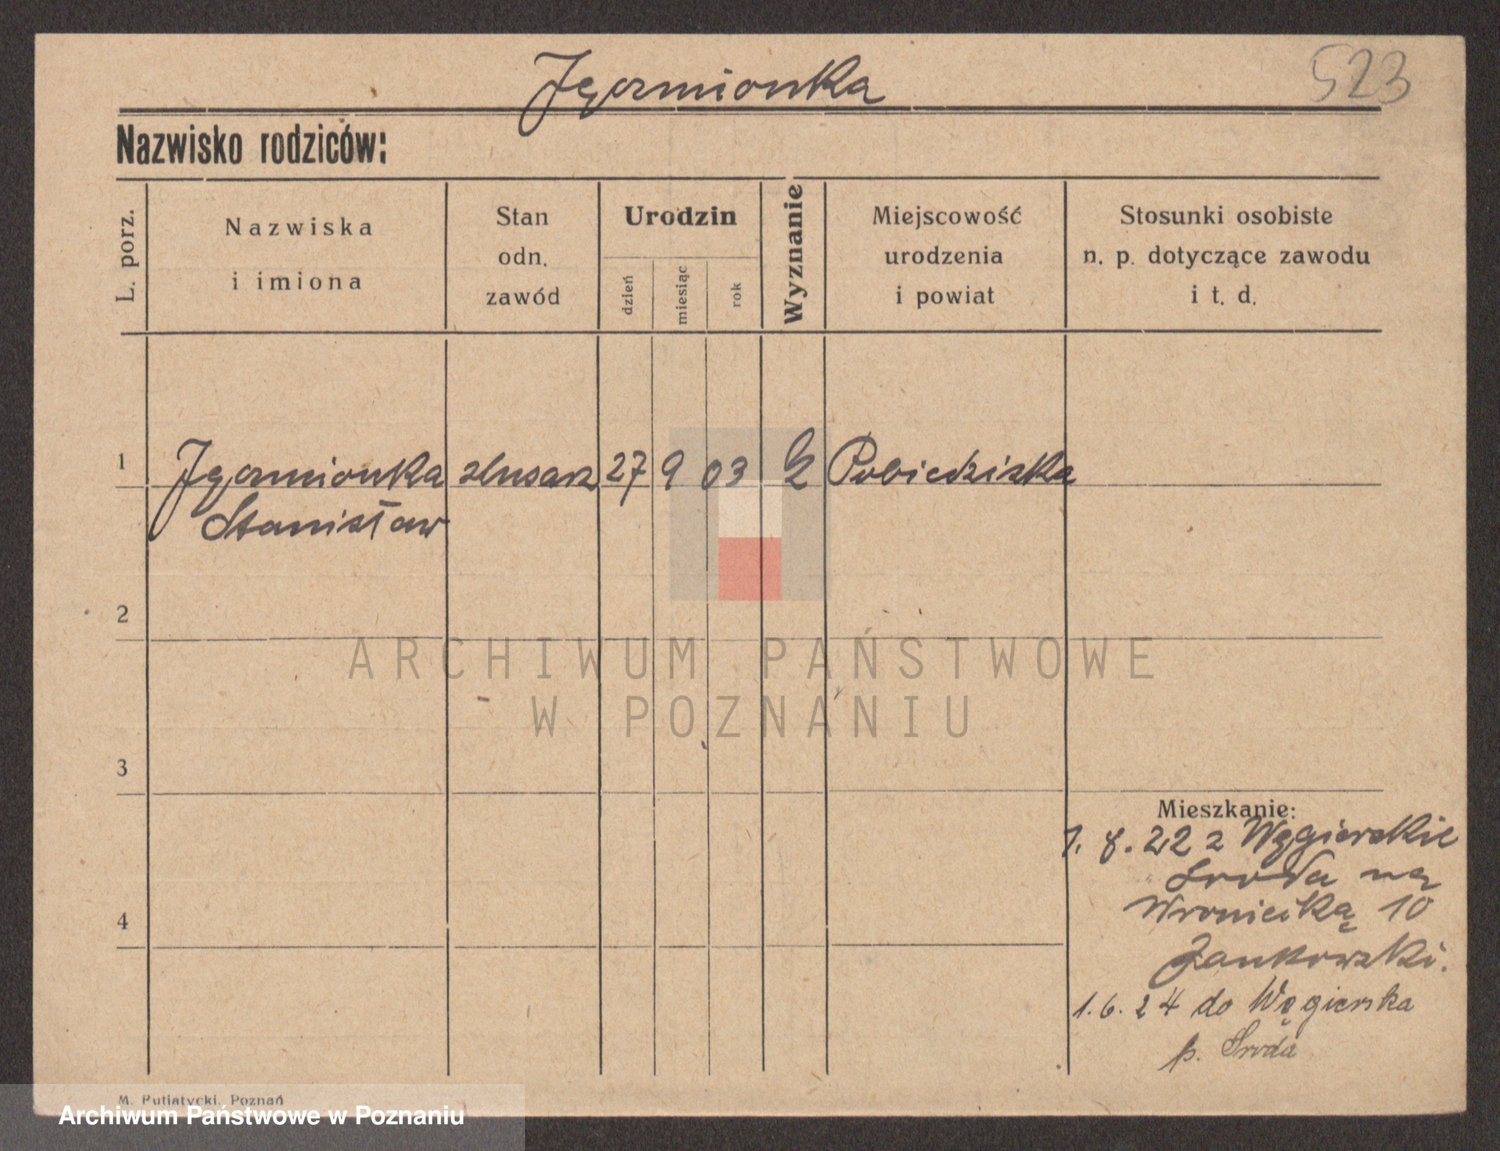 Jęczmionka
523
Nazwisko rodziców:
L. porz.
Nazwiska
i imiona
Stan
odn.
zawód
Urodzin
dzień
miesiąc
rok
Wyznanie
Miejscowość
urodzenia
i powiat
Stosunki osobiste
n. p. dotyczące zawodu
i t. d.
1
Jęczmionka ślusarz 27 9 03 Pobiedziska
Stanisław
2
ARCHIWUM PAŃSTWOWE
W POZNANIU
3
Mieszkanie:
1. 8. 22 z Węgierskie
Środa na
Wroniecką 10
Jankowski.
4
1. 6. 24 do Węgierska
p. Środa
M. Putiatycki, Poznań
Archiwum Państwowe w Poznaniu